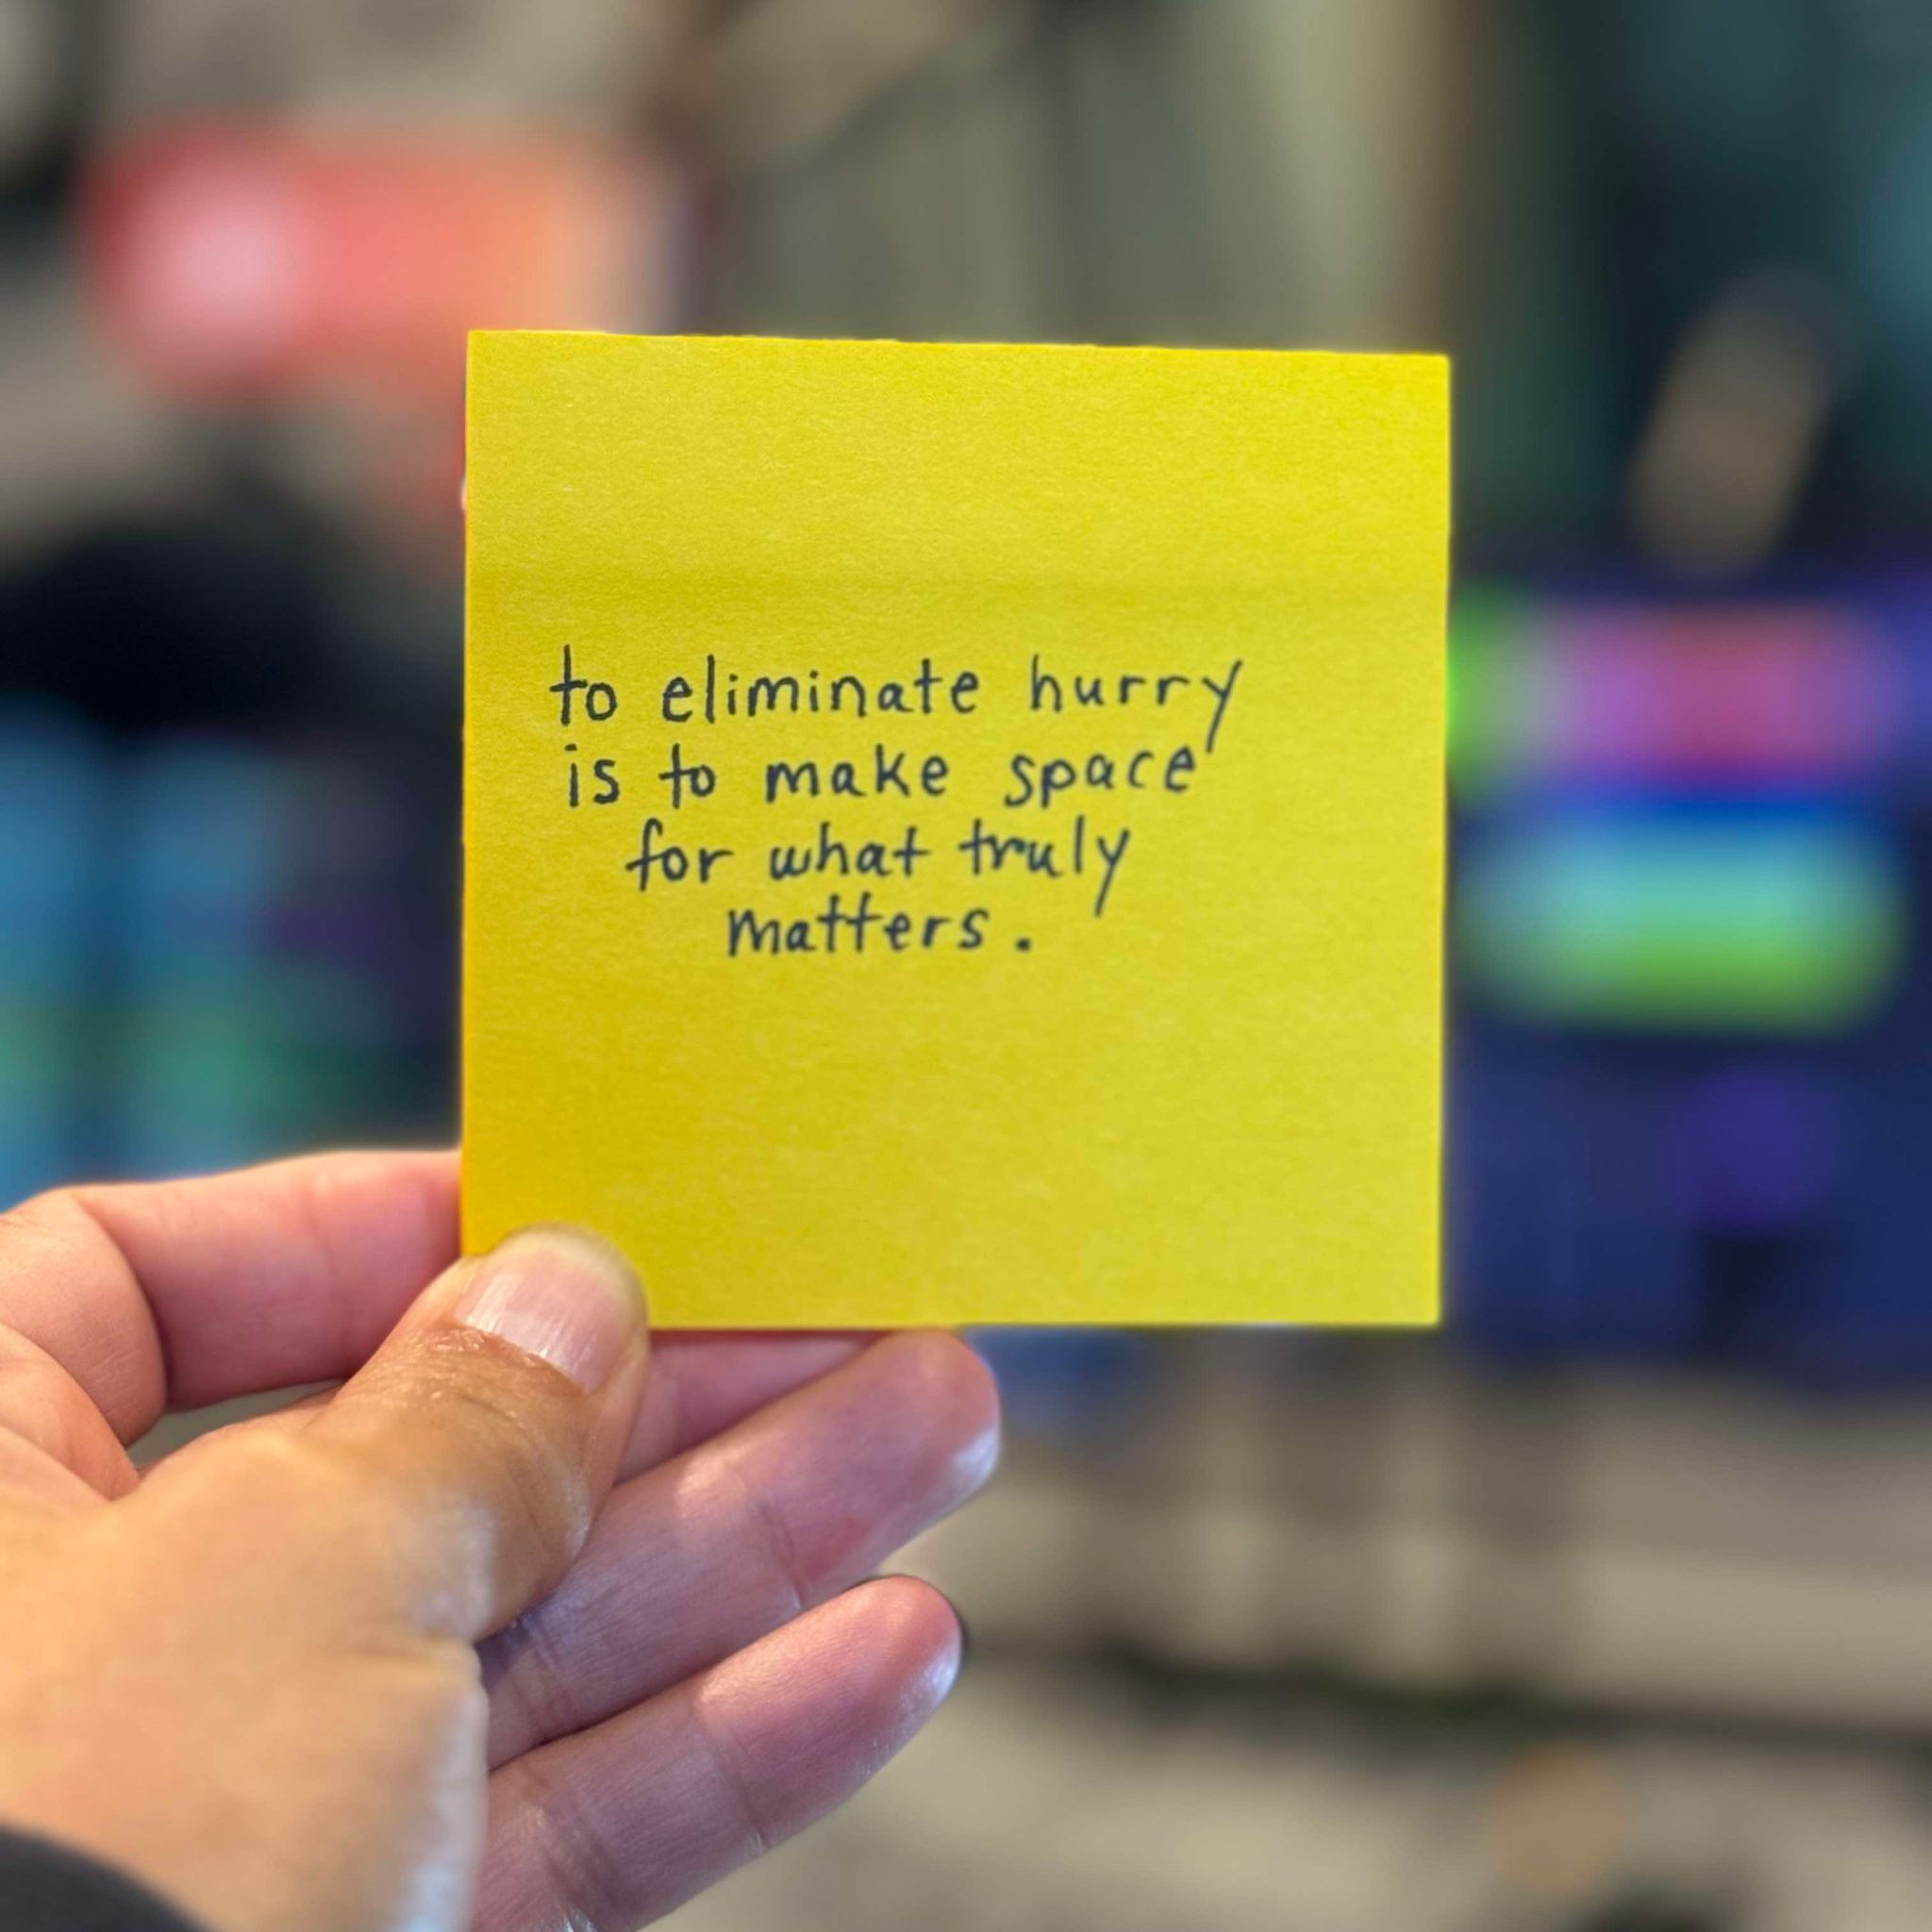 to eliminate hurry
is to make space
for what truly
matters.